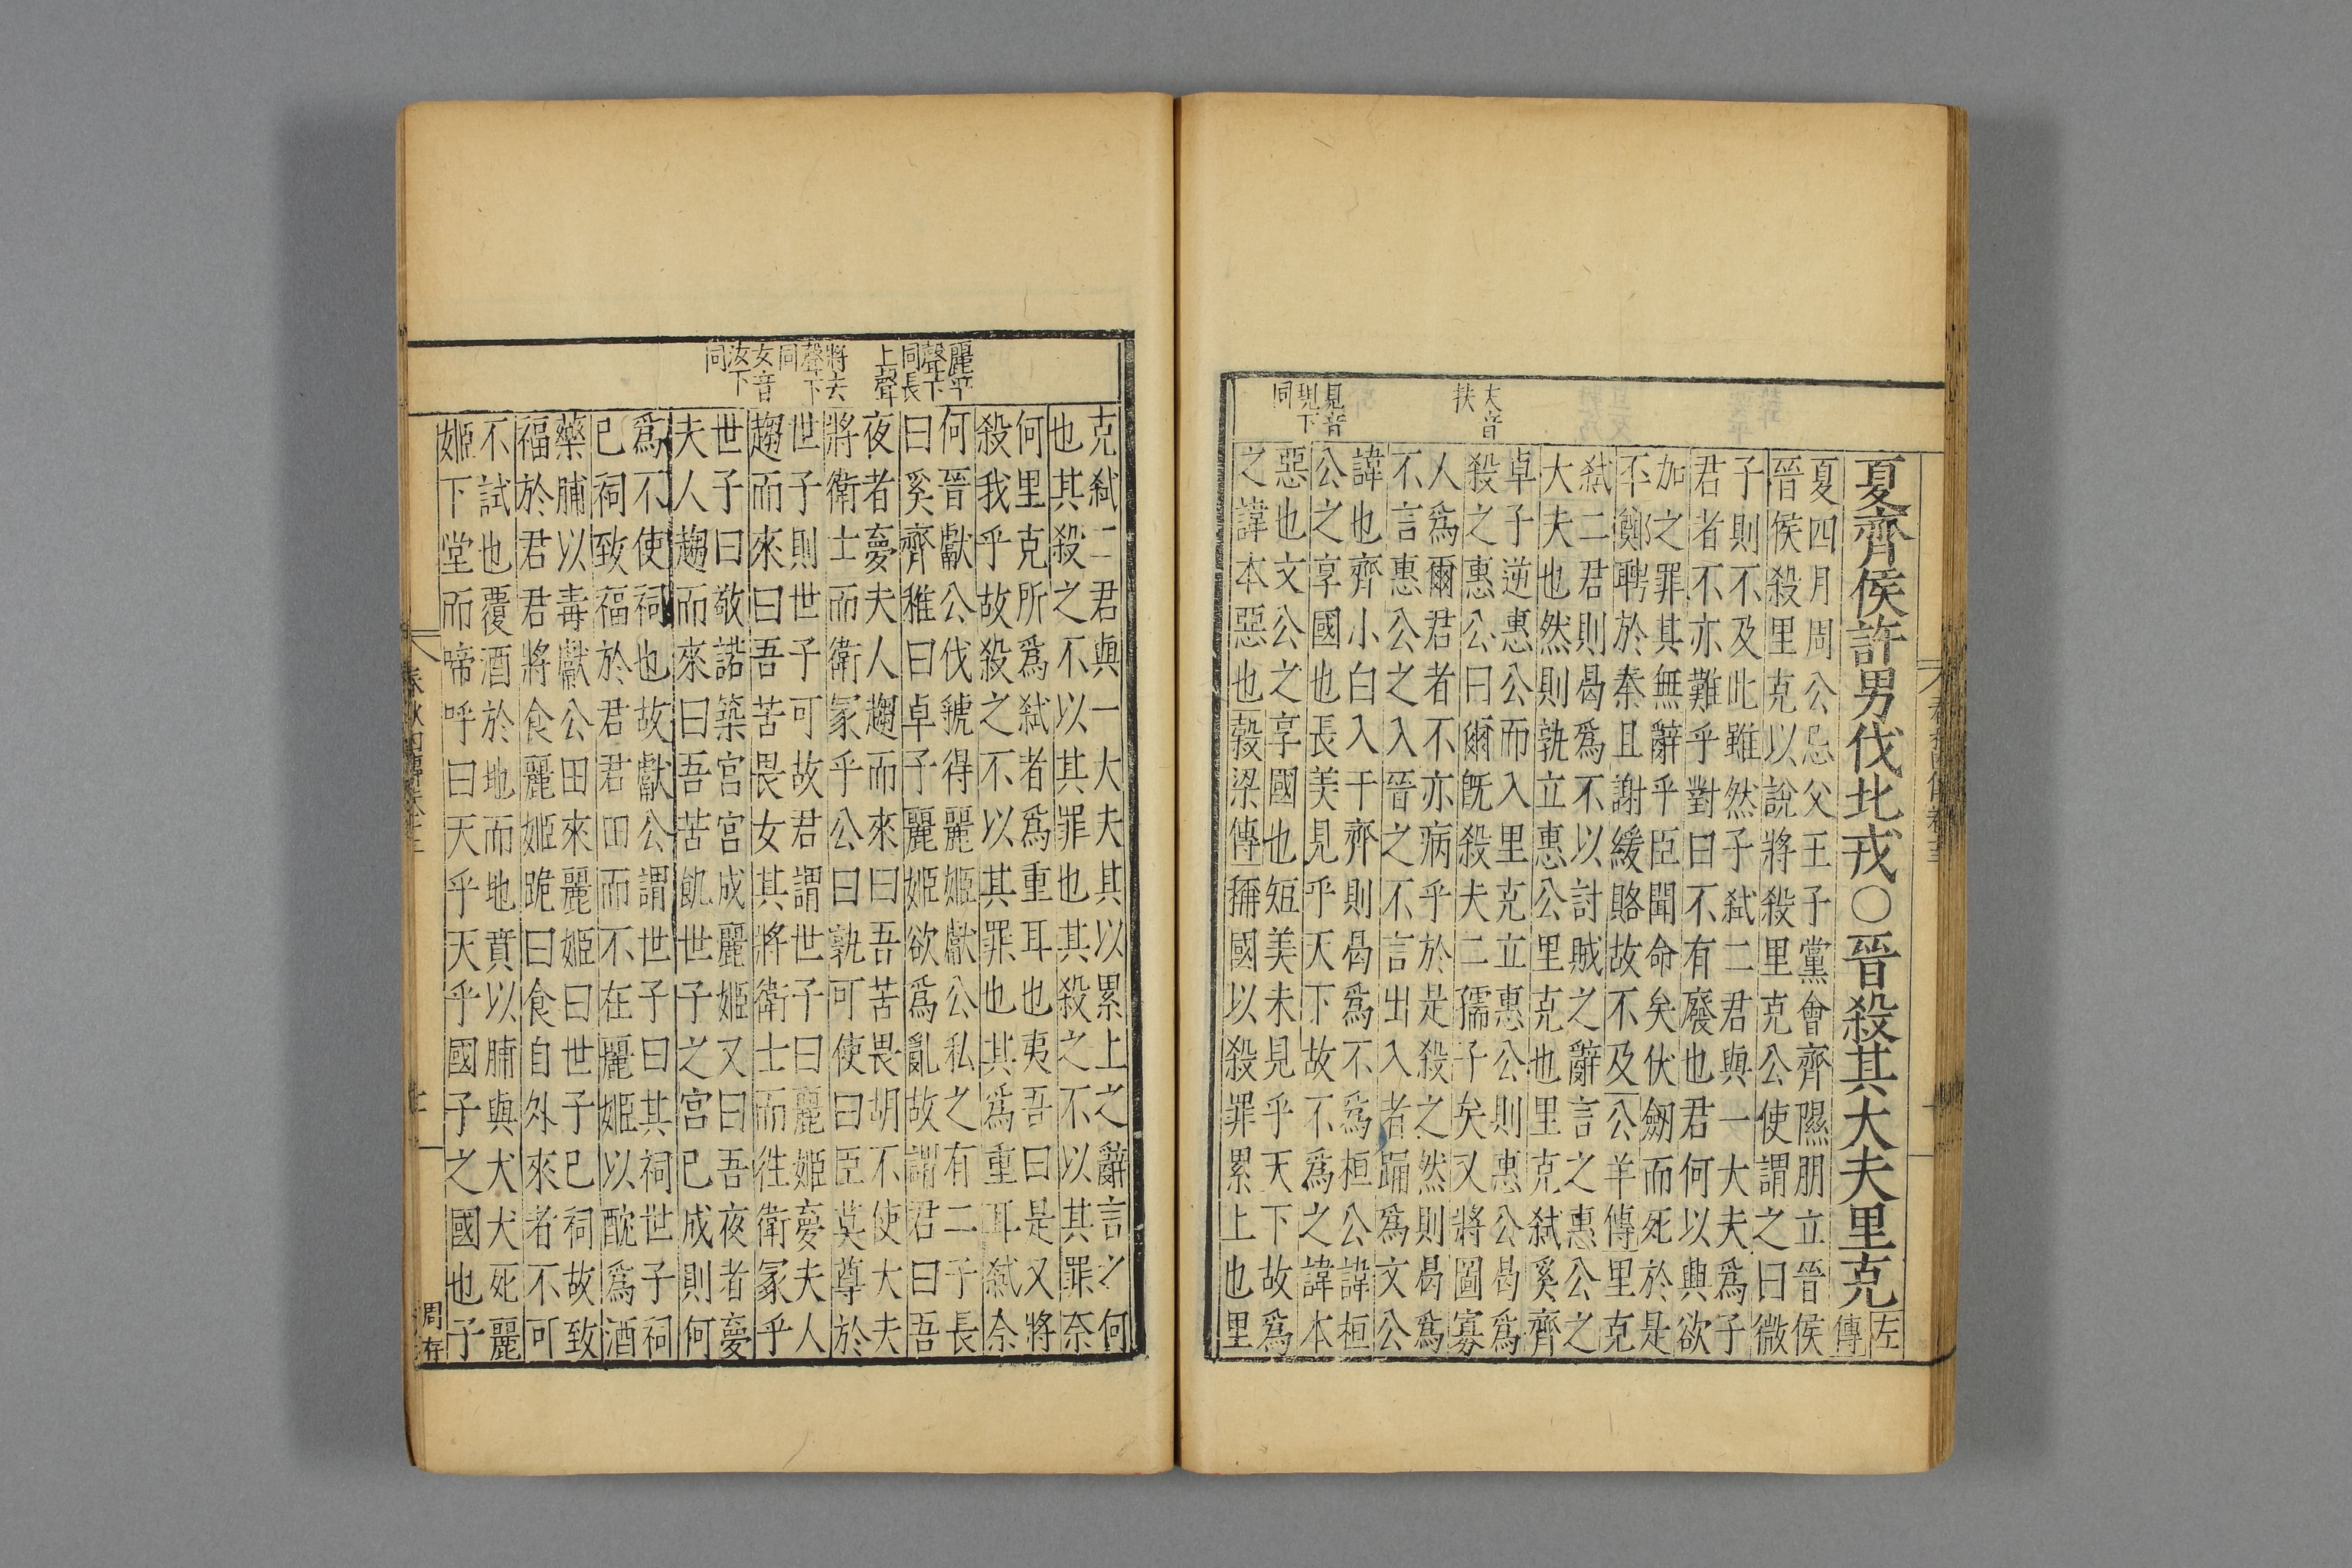 夏齊侯許男伐北戎〇晉殺其大夫里克左傳
夏四月周公忌父王子黨會齊隰朋立晉侯
晉侯殺里克以說將殺里克公使謂之曰微
子則不及此雖然子弑二君與一大夫爲子
君者不亦難乎對曰不有廢也君何以興欲
加之罪其無辭乎臣聞命矣伏劒而死於是
㔻鄭聘於秦且謝緩賂故不及公羊傳里克
弑二君則曷爲不以討賊之辭言之惠公之
大夫也然則孰立惠公里克也里克弑奚齊
卓子逆惠公而入里克立惠公則惠公曷爲
殺之惠公曰爾旣殺夫二孺子矣又將圖寡
人爲爾君者不亦病乎於是殺之然則曷爲
不言惠公之入晉之不言出入者踊爲文公
諱也齊小白入于齊則曷爲不爲桓公諱桓
公之享國也長美見乎天下故不爲之諱本
惡也文公之享國也短美未見乎天下故爲
之諱本惡也穀梁傳稱國以殺罪累上也里
夫音
扶
見音
現下
同
克弑二君與一大夫其以累上之辭言之何
也其殺之不以其罪也其殺之不以其罪奈
何里克所爲弑者爲重耳也夷吾曰是又將
殺我乎故殺之不以其罪也其爲重耳弑奈
何晉獻公伐虢得麗姬獻公私之有二子長
曰奚齊稚曰卓子麗姬欲爲亂故謂君曰吾
夜者夢夫人趨而來曰吾苦畏胡不使大夫
將衛士而衛冢乎公曰孰可使曰臣莫尊於
世子則世子可故君謂世子曰麗姬夢夫人
趨而來曰吾苦畏女其將衛士而徃衛冢乎
世子曰敬諾築宮宮成麗姬又曰吾夜者夢
夫人趨而來曰吾苦飢世子之宮已成則何
爲不使祠也故獻公謂世子曰其祠世子祠
已祠致福於君君田而不在麗姬以酖爲酒
藥脯以毒獻公田來麗姬曰世子已祠故致
福於君君將食麗姬跪曰食自外來者不可
不試也覆酒於地而地賁以脯與犬犬死麗
姬下堂而啼呼曰天乎天乎國子之國也子
麗平
聲下
同長
上聲
將去
聲下
同
女音
汝下
同
周存